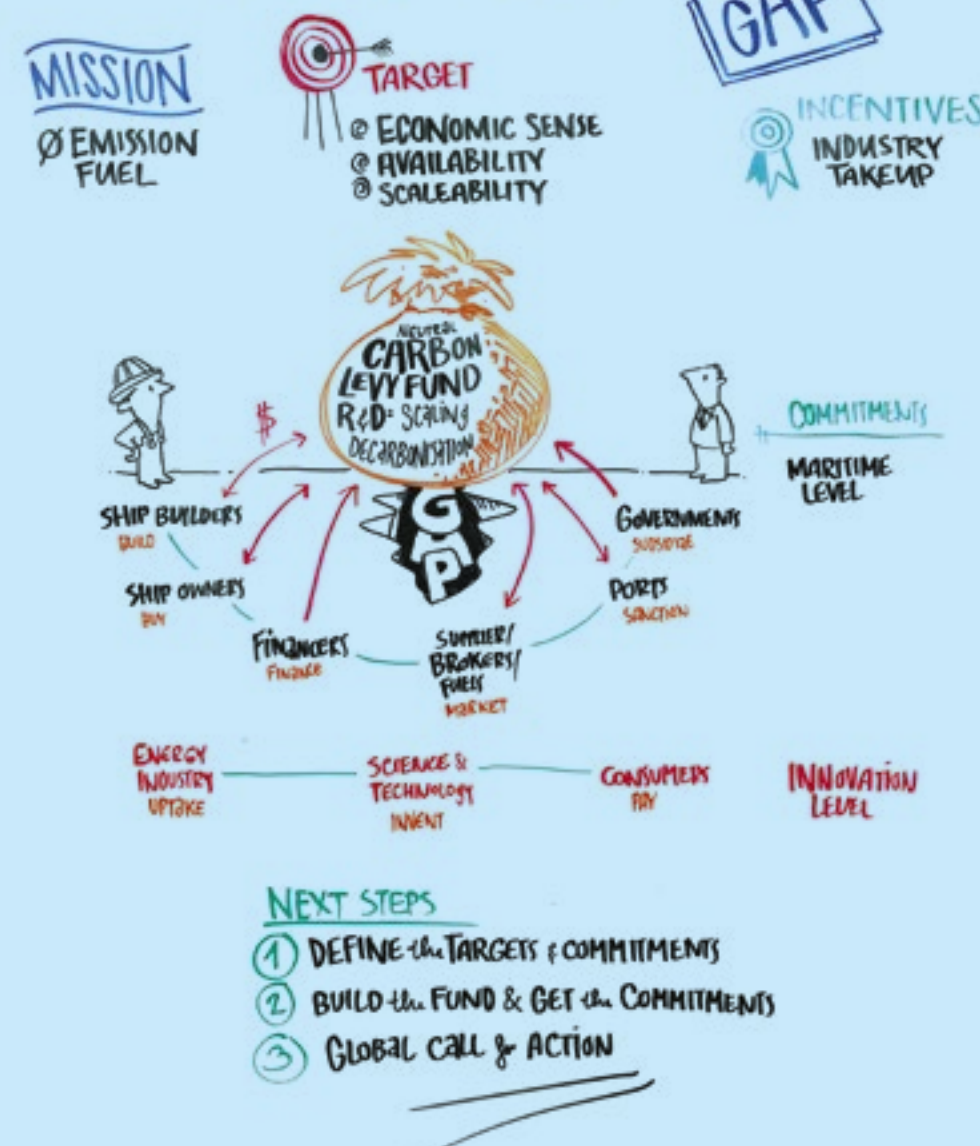 GAP
MISSION
Ø EMISSION
FUEL
TARGET
@ ECONOMIC SENSE
@ AVAILABILITY
@ SCALEABILITY
INCENTIVES
INDUSTRY
TAKEUP
NEUTRAL
CARBON
LEVY FUND
R&D: SCALING
DECARBONISATION
$
COMMITMENTS
MARITIME
LEVEL
GAP
SHIP BUILDERS
BUILD
SHIP OWNERS
BUY
FINANCERS
FINANCE
SUPPLIER/
BROKERS/
FUELS
MARKET
PORTS
SANCTION
GOVERNMENTS
SUBSIDIZE
ENERGY
INDUSTRY
UPTAKE
SCIENCE &
TECHNOLOGY
INVENT
CONSUMERS
PAY
INNOVATION
LEVEL
NEXT STEPS
1 DEFINE the TARGETS & COMMITMENTS
2 BUILD the FUND & GET the COMMITMENTS
3 GLOBAL CALL for ACTION